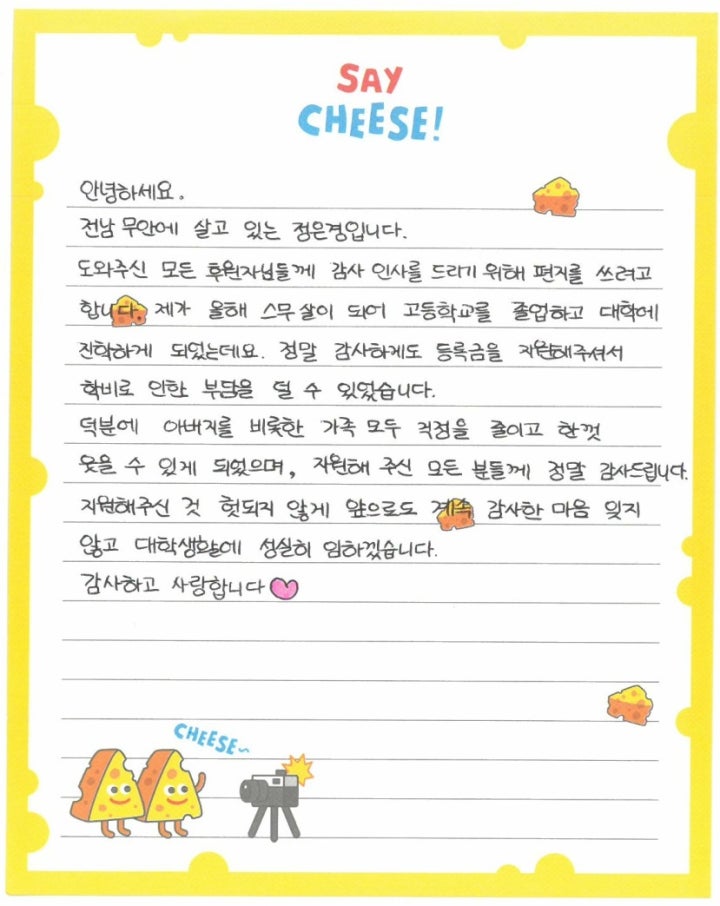 SAY
CHEESE!
안녕하세요.
전남 무안에 살고 있는 정은경입니다.
도와주신 모든 후원자님들께 감사 인사를 드리기 위해 편지를 쓰려고
합니다. 제가 올해 스무살이 되어 고등학교를 졸업하고 대학에
진학하게 되었는데요. 정말 감사하게도 등록금을 지원해주셔서
학비로 인한 부담을 덜 수 있었습니다.
덕분에 아버지를 비롯한 가족 모두 걱정을 줄이고 한껏
웃을 수 있게 되었으며, 지원해 주신 모든 분들께 정말 감사드립니다.
지원해주신 것 헛되지 않게 앞으로도 계속 감사한 마음 잊지
않고 대학생활에 성실히 임하겠습니다.
감사하고 사랑합니다
CHEESE~